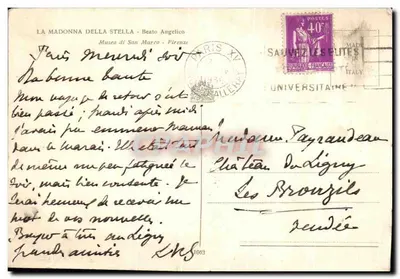 LA MADONNA DELLA STELLA - Beato Angelico
Museo di San Marco - Firenze
Paris Mercredi soir
Ma bonne tante
Mon voyage de retour s'est
bien passé; mardi après midi
j'avais pu emmener Maman
dans le marai. Elle était
de même un peu fatiguée le
soir, mais bien contente. Je
serai heureux de recevoir un
mot de vos nouvelles.
au Ligny
grandes amitiés
PARIS XV
POSTES
40c
SAUVEZ
UNIVERSITAIRE
ITALY
Madame Payraudeau
Château du Ligny
Les Brouzils
Vendée